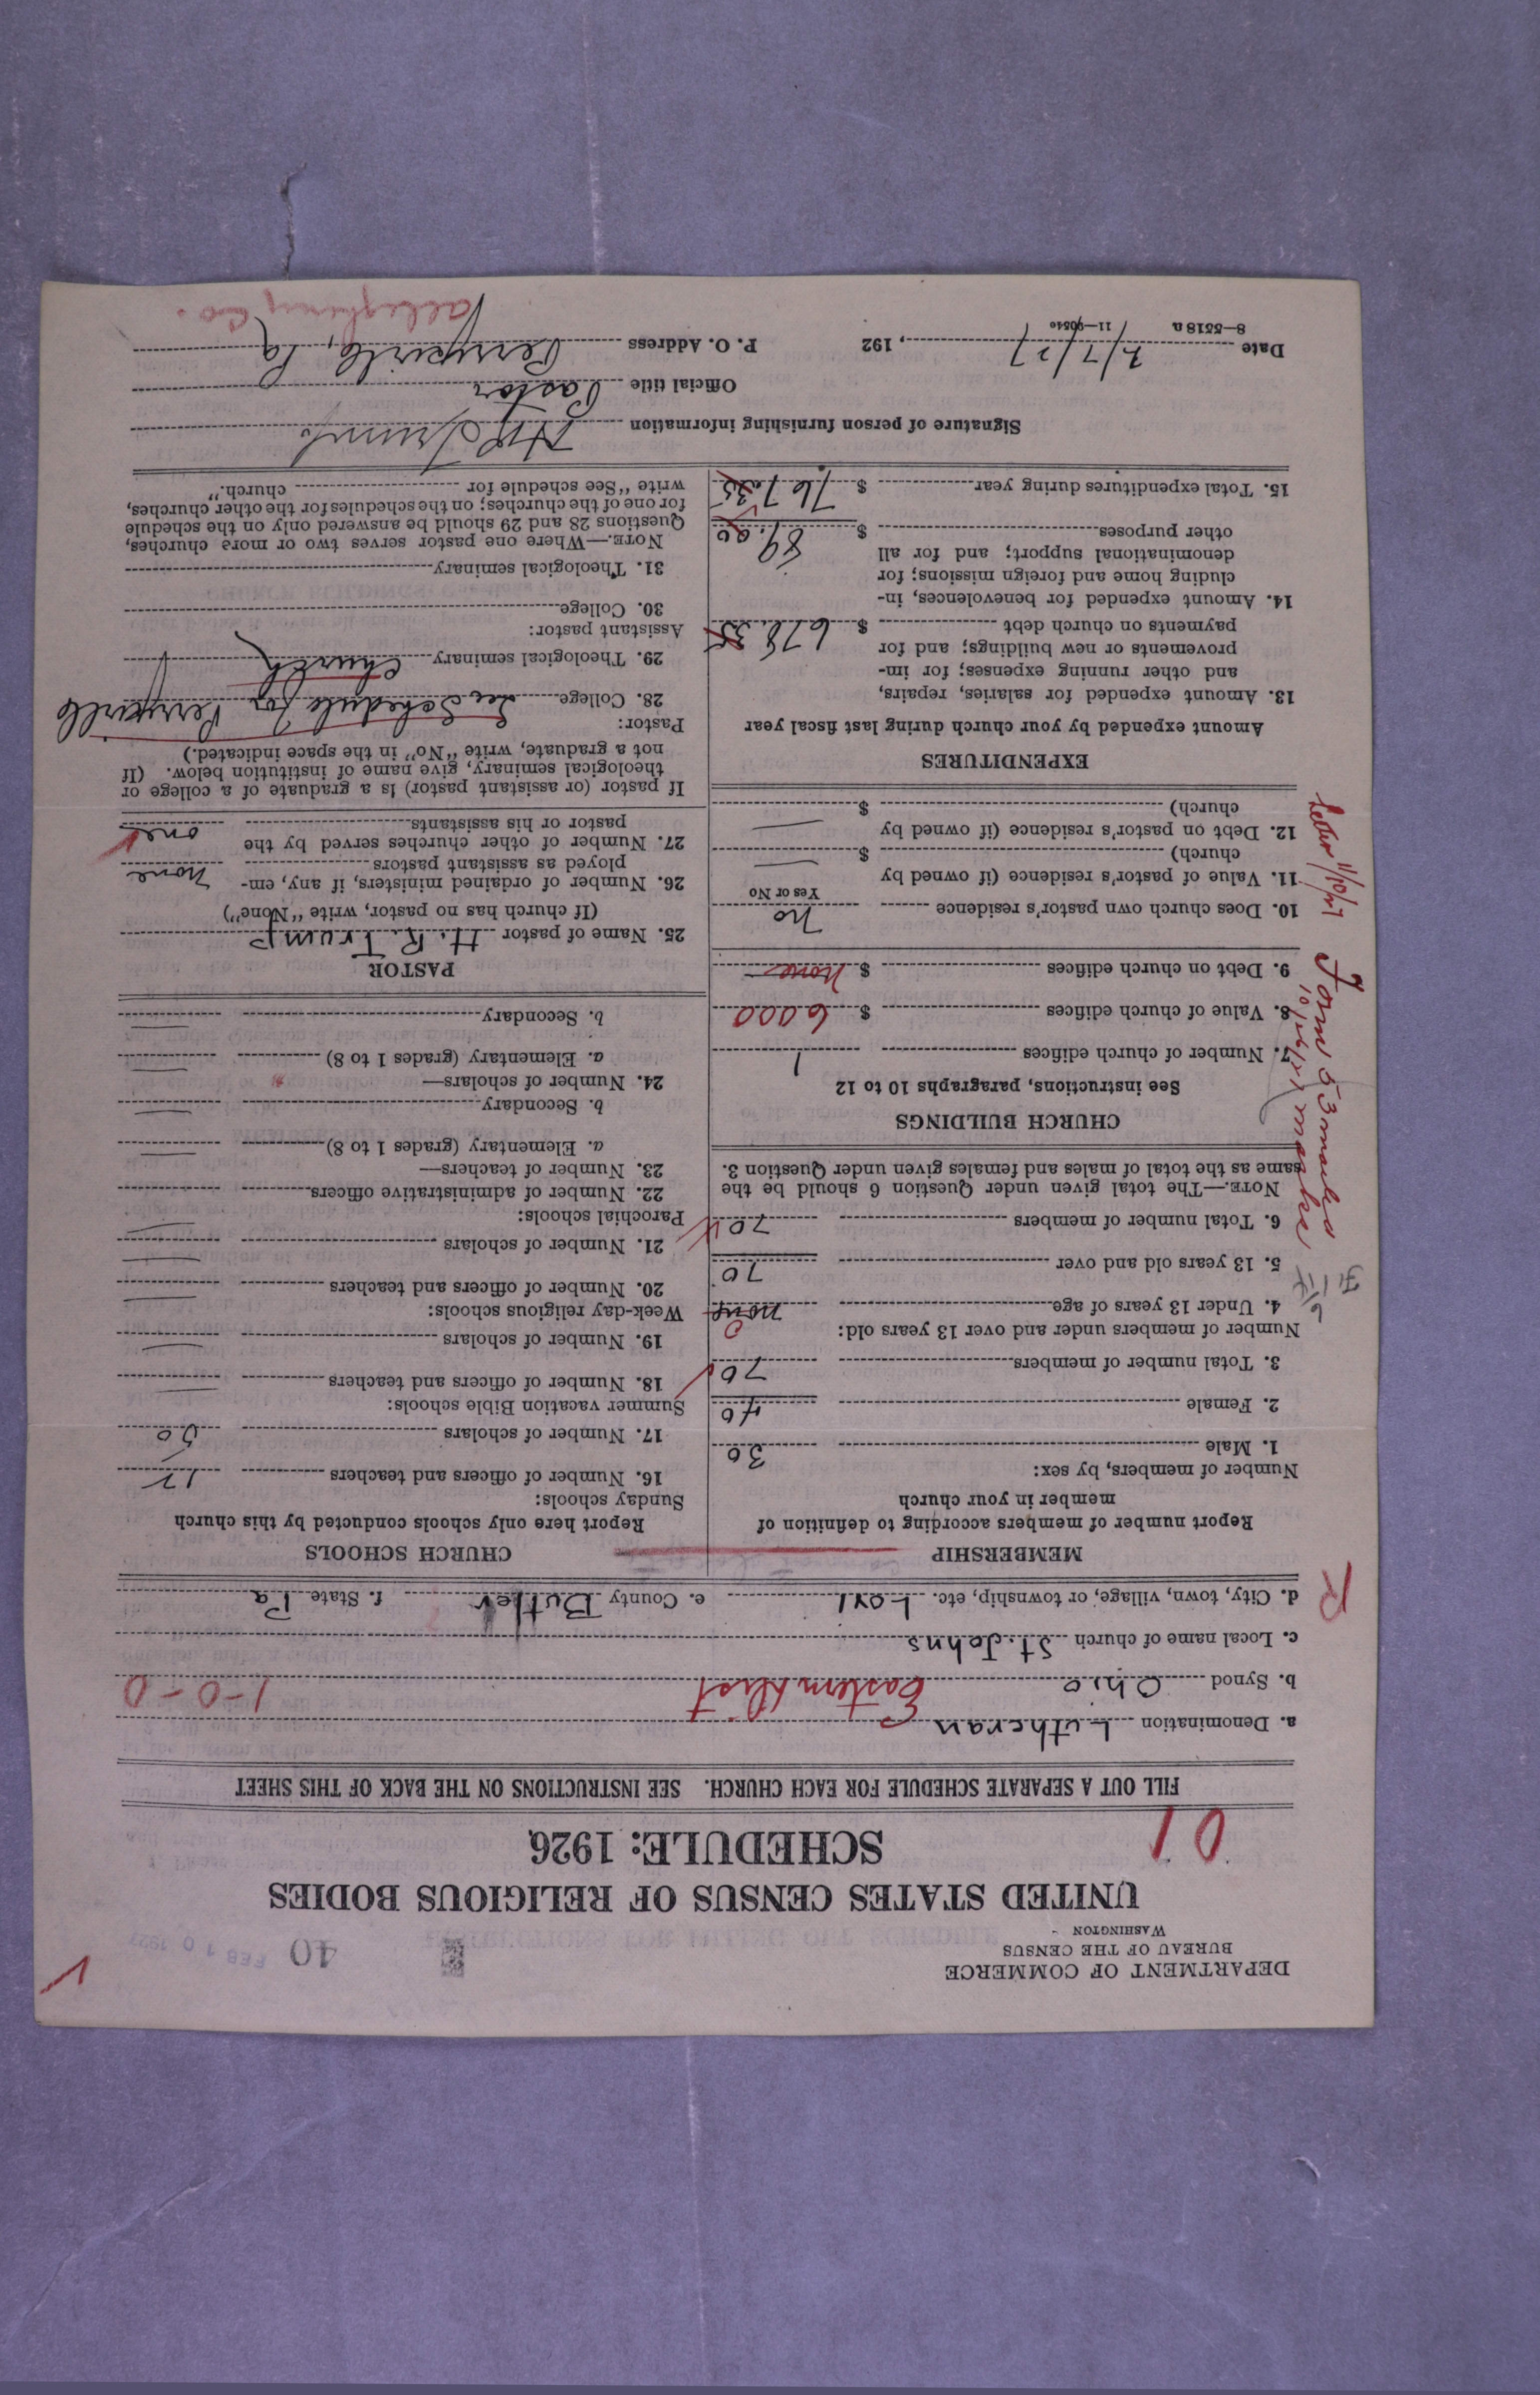 DEPARTMENT OF COMMERCE
BUREAU OF THE CENSUS
WASHINGTON
40 FEB 10 1927
UNITED STATES CENSUS OF RELIGIOUS BODIES
SCHEDULE: 1926
01
FILL OUT A SEPARATE SCHEDULE FOR EACH CHURCH. SEE INSTRUCTIONS ON THE BACK OF THIS SHEET
a. Denomination Lutheran
b. Synod Ohio Eastern Dist 1-0-0
c. Local name of church St. Johns
d. City, town, village, or township, etc. e. County Butler f. State Pa
R
MEMBERSHIP
Report number of members according to definition of
member in your church
Number of members, by sex:
1. Male 30
2. Female 40
3. Total number of members 70
Number of members under and over 13 years old:
4. Under 13 years of age none 0
5. 13 years old and over 70
6. Total number of members 70
NOTE.—The total given under Question 6 should be the
same as the total of males and females given under Question 3.
CHURCH BUILDINGS
See instructions, paragraphs 10 to 12
7. Number of church edifices 1
8. Value of church edifices $ 6000
9. Debt on church edifices $ none
10. Does church own pastor's residence no
Yes or No
11. Value of pastor's residence (if owned by
church) $
12. Debt on pastor's residence (if owned by
church) $
EXPENDITURES
Amount expended by your church during last fiscal year
13. Amount expended for salaries, repairs,
and other running expenses; for im-
provements or new buildings; and for
payments on church debt $ 678.35
14. Amount expended for benevolences, in-
cluding home and foreign missions; for
denominational support; and for all
other purposes $ 89.00
15. Total expenditures during year $ 767.35
CHURCH SCHOOLS
Report here only schools conducted by this church
Sunday schools:
16. Number of officers and teachers 12
17. Number of scholars 50
Summer vacation Bible schools:
18. Number of officers and teachers
19. Number of scholars
Week-day religious schools:
20. Number of officers and teachers
21. Number of scholars
Parochial schools:
22. Number of administrative officers
23. Number of teachers—
a. Elementary (grades 1 to 8)
b. Secondary
24. Number of scholars—
a. Elementary (grades 1 to 8)
b. Secondary
PASTOR
25. Name of pastor H. R. Trump
(If church has no pastor, write "None")
26. Number of ordained ministers, if any, em-
ployed as assistant pastors none
27. Number of other churches served by the
pastor or his assistants one
If pastor (or assistant pastor) is a graduate of a college or
theological seminary, give name of institution below. (If
not a graduate, write "No" in the space indicated.)
Pastor:
28. College See Schedule for Perrysville
29. Theological seminary Church
Assistant pastor:
30. College
31. Theological seminary
NOTE.—Where one pastor serves two or more churches,
Questions 28 and 29 should be answered only on the schedule
for one of the churches; on the schedules for the other churches,
write "See schedule for church."
Signature of person furnishing information HR Trump
Official title Pastor
Date 2/7/27, 192 P. O. Address Perrysville, Pa
Allegheny Co.
8—5518 a 11—9054c
Letter 11/10/27
Form 53 mailed